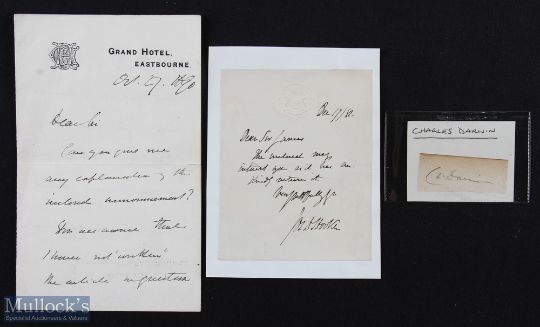 GRAND HOTEL,
EASTBOURNE
Oct. 27. 1890
Dear Sir
Can you give me
any explanation of the
inclosed announcement?
You are aware that
I have not written
the article in question
Dec 17/81.
Dear Sir James
The inclosed may
interest you
Kindly return it
Jos D Hooker
CHARLES DARWIN
Ch. Darwin
Mullock's
Specialist Auctioneers & Valuers